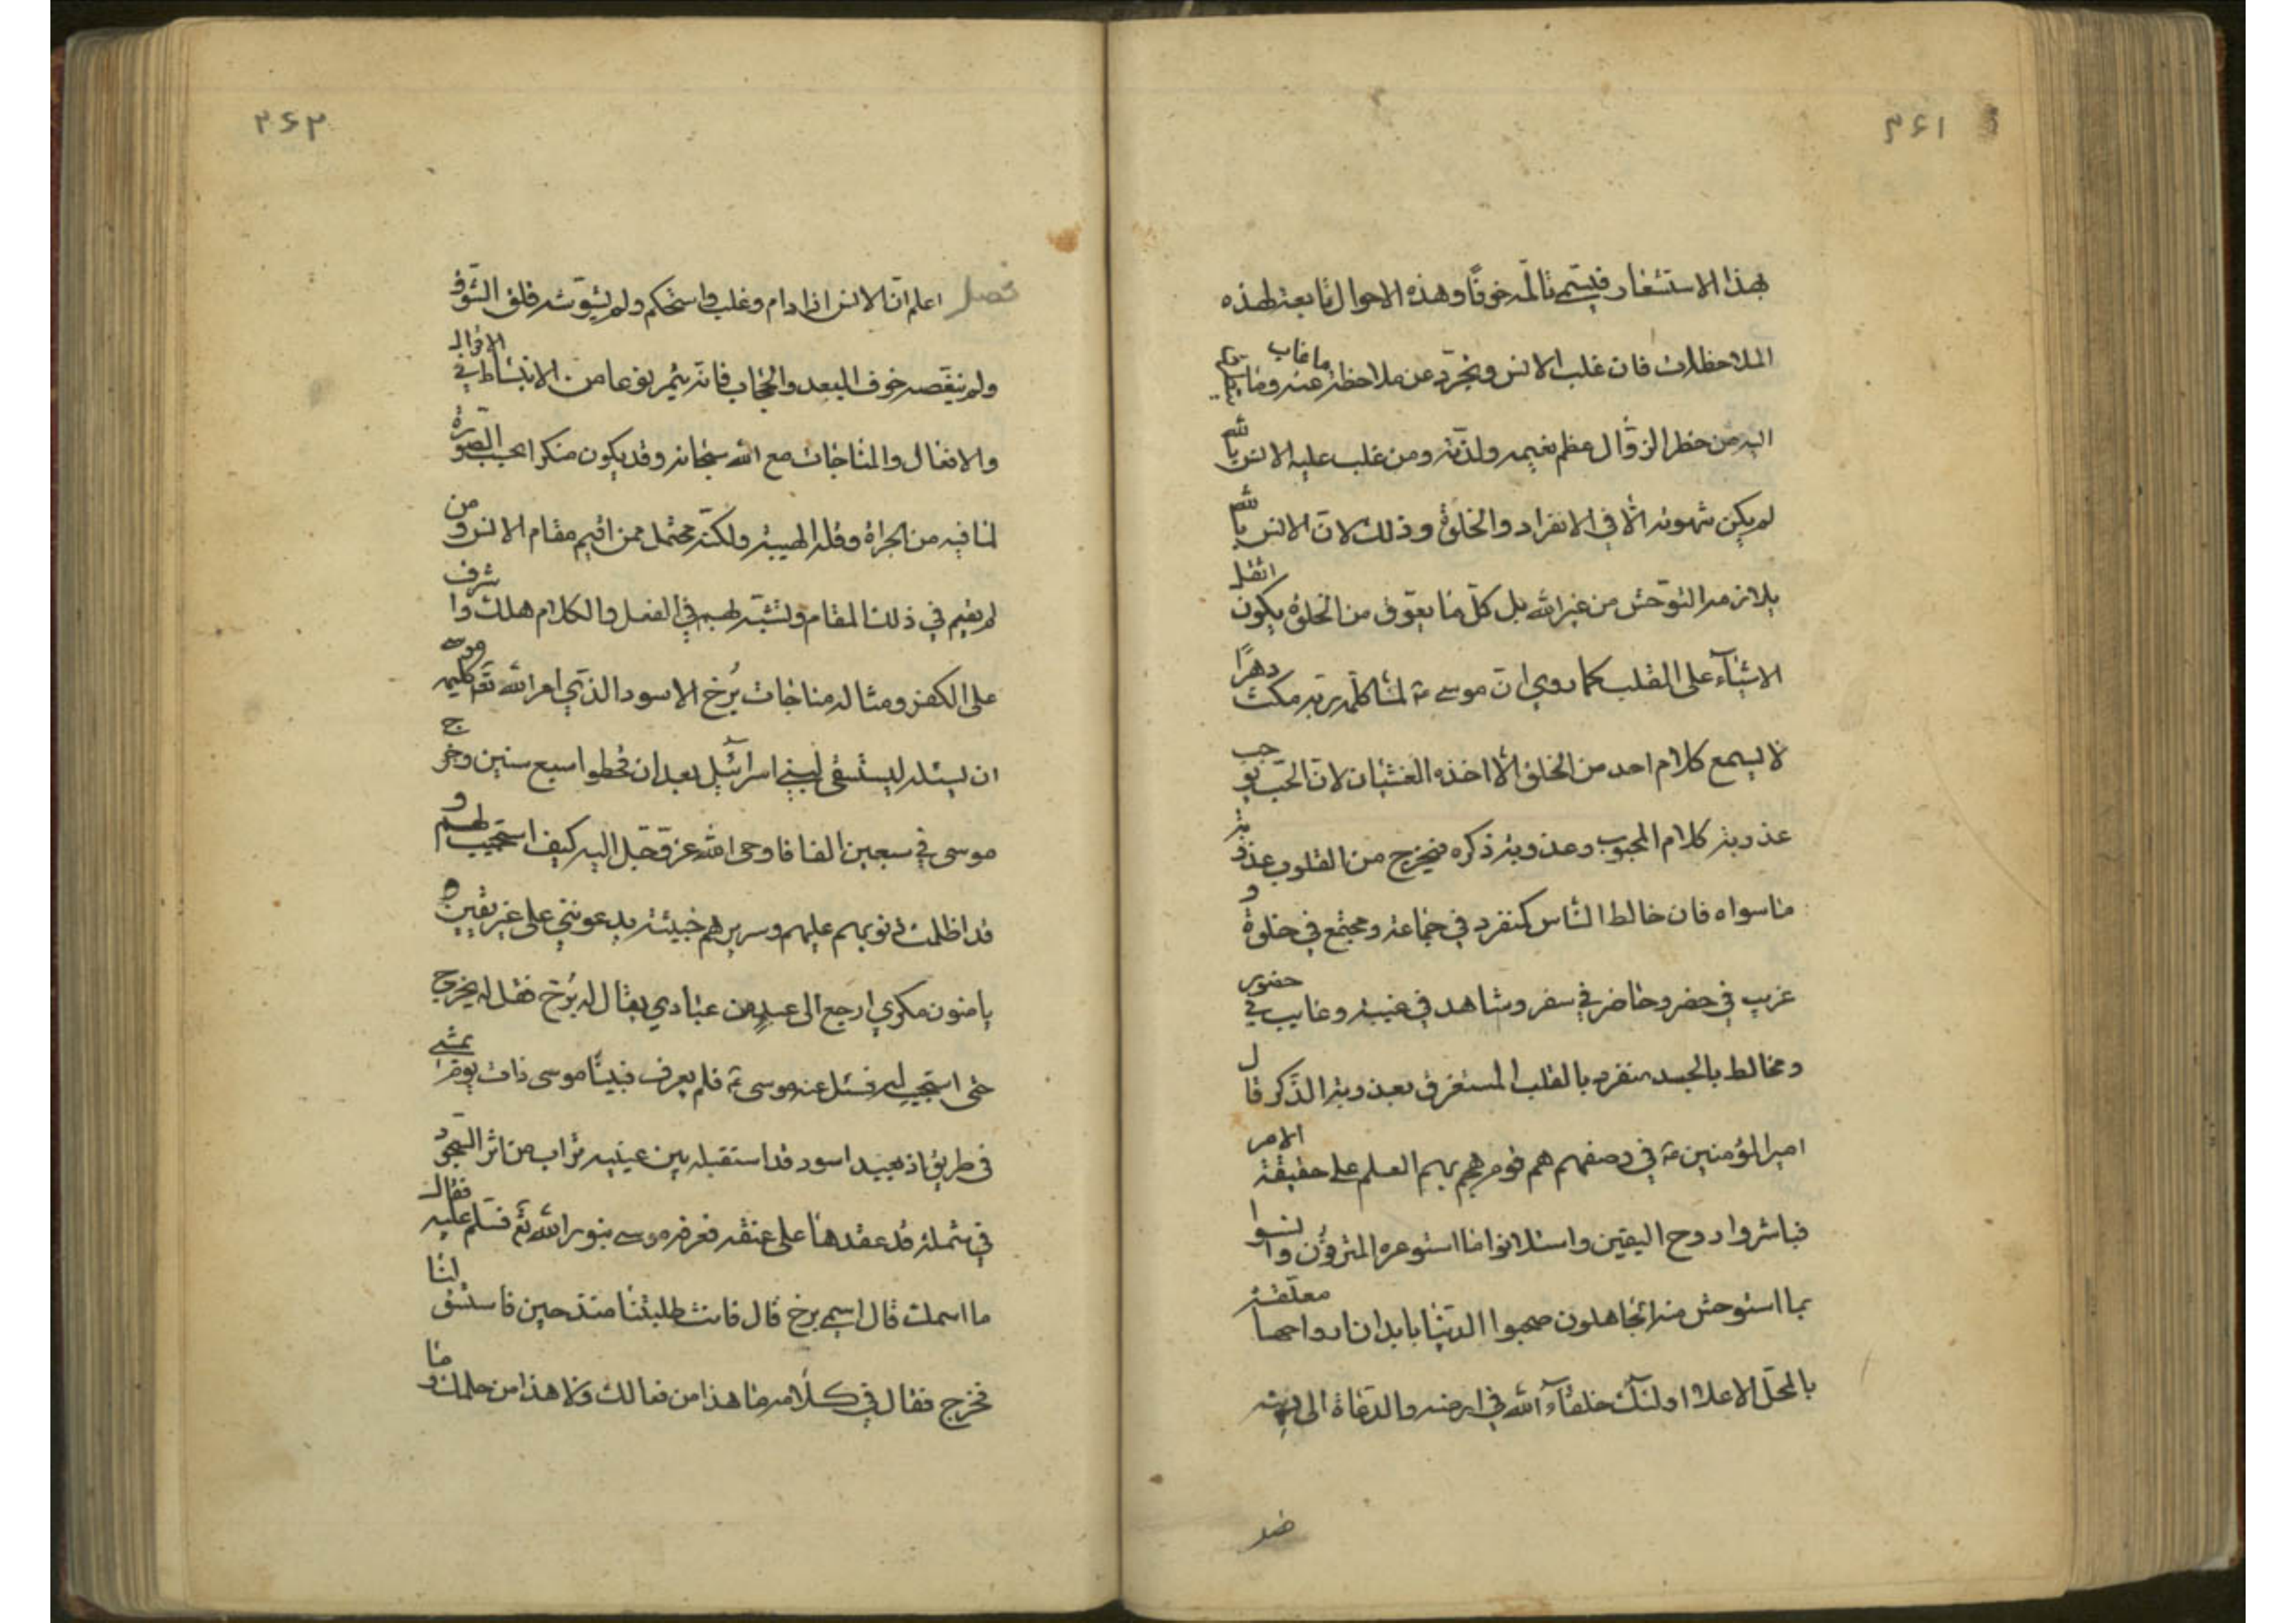 ۳۶۱
بهذا الاستشعار فيسمّى تألّمه خوفًا وهذه الاحوال تابعة لهذه
الملاحظات فان غلب الانس وتجرّد عن ملاحظة ما غاب عنه وما يتطرق
اليه من خطر الزوال عظم نعيمه ولذّته ومن غلب عليه الانس بالله
لم يكن شهوته الّا في الانفراد والخلوة وذلك لانّ الانس بالله
يلازمه التوحّش من غير الله بل كلّ ما يعوّق من الخلوة يكون اثقل
الاشيآء على القلب كما روي انّ موسى ع لمّا كلّمه ربّه مكث دهرًا
لا يسمع كلام احد من الخلق الّا اخذه الغشيان لانّ الحبّ يوجب
عذوبة كلام المحبوب وعذوبة ذكره فيخرج من القلوب عذوبة
ما سواه فان خالط الناس كمنفرد في جماعة ومجتمع في خلوة و
غريب في حضر وحاضر في سفر وشاهد في غيبة وغايب في حضور
ومخالط بالجسد منفرد بالقلب المستغرق بعذوبة الذّكر قال
امير المؤمنين ع في وصفهم هم قوم هجم بهم العلم على حقيقة الامر
فباشروا روح اليقين واستلانوا ما استوعره المترفون وانسوا
بما استوحش منه الجاهلون صحبوا الدّنيا بابدان ارواحها معلّقة
بالمحلّ الاعلا اولئك خلفآء الله في ارضه والدّعاة الى دينه
۳۶۲
فصل اعلم انّ الانس اذا دام وغلب واستحكم ولم يشوّشه قلق الشّوق
ولم ينغّصه خوف البعد والحجاب فانّه يثمر نوعا من الانبساط في الاقوال
والافعال والمناجات مع الله سبحانه وقد يكون منكرا بحسب الصّورة
لما فيه من الجراة وقلّة الهيبة ولكنّه محتمل ممن اقيم مقام الانس ومن
لم يقم في ذلك المقام وتشبّه بهم في الفعل والكلام هلك واشرف
على الكفر ومثاله مناجات بُرخ الاسود الذّي امر الله تعم كليمه موسى
ان يسئله ليستسقى لبني اسرآئيل بعد ان قحطوا سبع سنين وخرج
موسى في سبعين الفا فاوحى الله عزّ وجّل اليه كيف استجيب لهم و
قد اظلمت ذنوبهم عليهم وسريرهم خبيثة يدعونني على غير يقين و
يامنون مكري ارجع الى عبد من عبادي يقال له بُرخ فقل له يخرج
حتى استجيب له فسئل عنه موسى ع فلم يعرف فبينا موسى ذات يوم يمشي
في طريق اذ بعبد اسود قد استقبله بين عينيه تراب من اثر السّجود
في شملة قد عقدها على عنقه فعرفه موسى بنور الله تع فسلّم عليه فقال
ما اسمك قال اسمي برخ قال فانت طلبتنا منذ حين فاستسق لنا
فخرج فقال في كلامه ما هذا من فعالك ولا هذا من حلمك وما